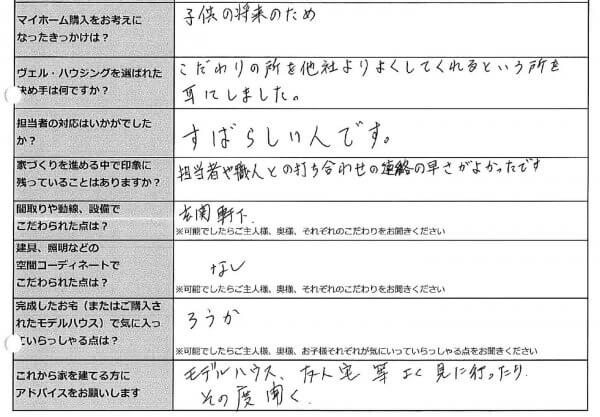 マイホーム購入をお考えに
なったきっかけは？
子供の将来のため
ヴェル・ハウジングを選ばれた
決め手は何ですか？
こだわりの所を他社よりよくしてくれるという所を
耳にしました。
担当者の対応はいかがでした
か？
すばらしい人です。
家づくりを進める中で印象に
残っていることはありますか？
担当者や職人との打ち合わせの連絡の早さがよかったです
間取りや動線、設備で
こだわられた点は？
玄関軒下、
※可能でしたらご主人様、奥様、それぞれのこだわりをお聞きください
建具、照明などの
空間コーディネートで
こだわられた点は？
なし
※可能でしたらご主人様、奥様、それぞれのこだわりをお聞きください
完成したお宅（またはご購入さ
れたモデルハウス）で気に入っ
ていらっしゃる点は？
ろうか
※可能でしたらご主人様、奥様、お子様それぞれが気にいっていらっしゃる点をお聞きください
これから家を建てる方に
アドバイスをお願いします
モデルハウス、友人宅等よく見に行ったり、
その度聞く。